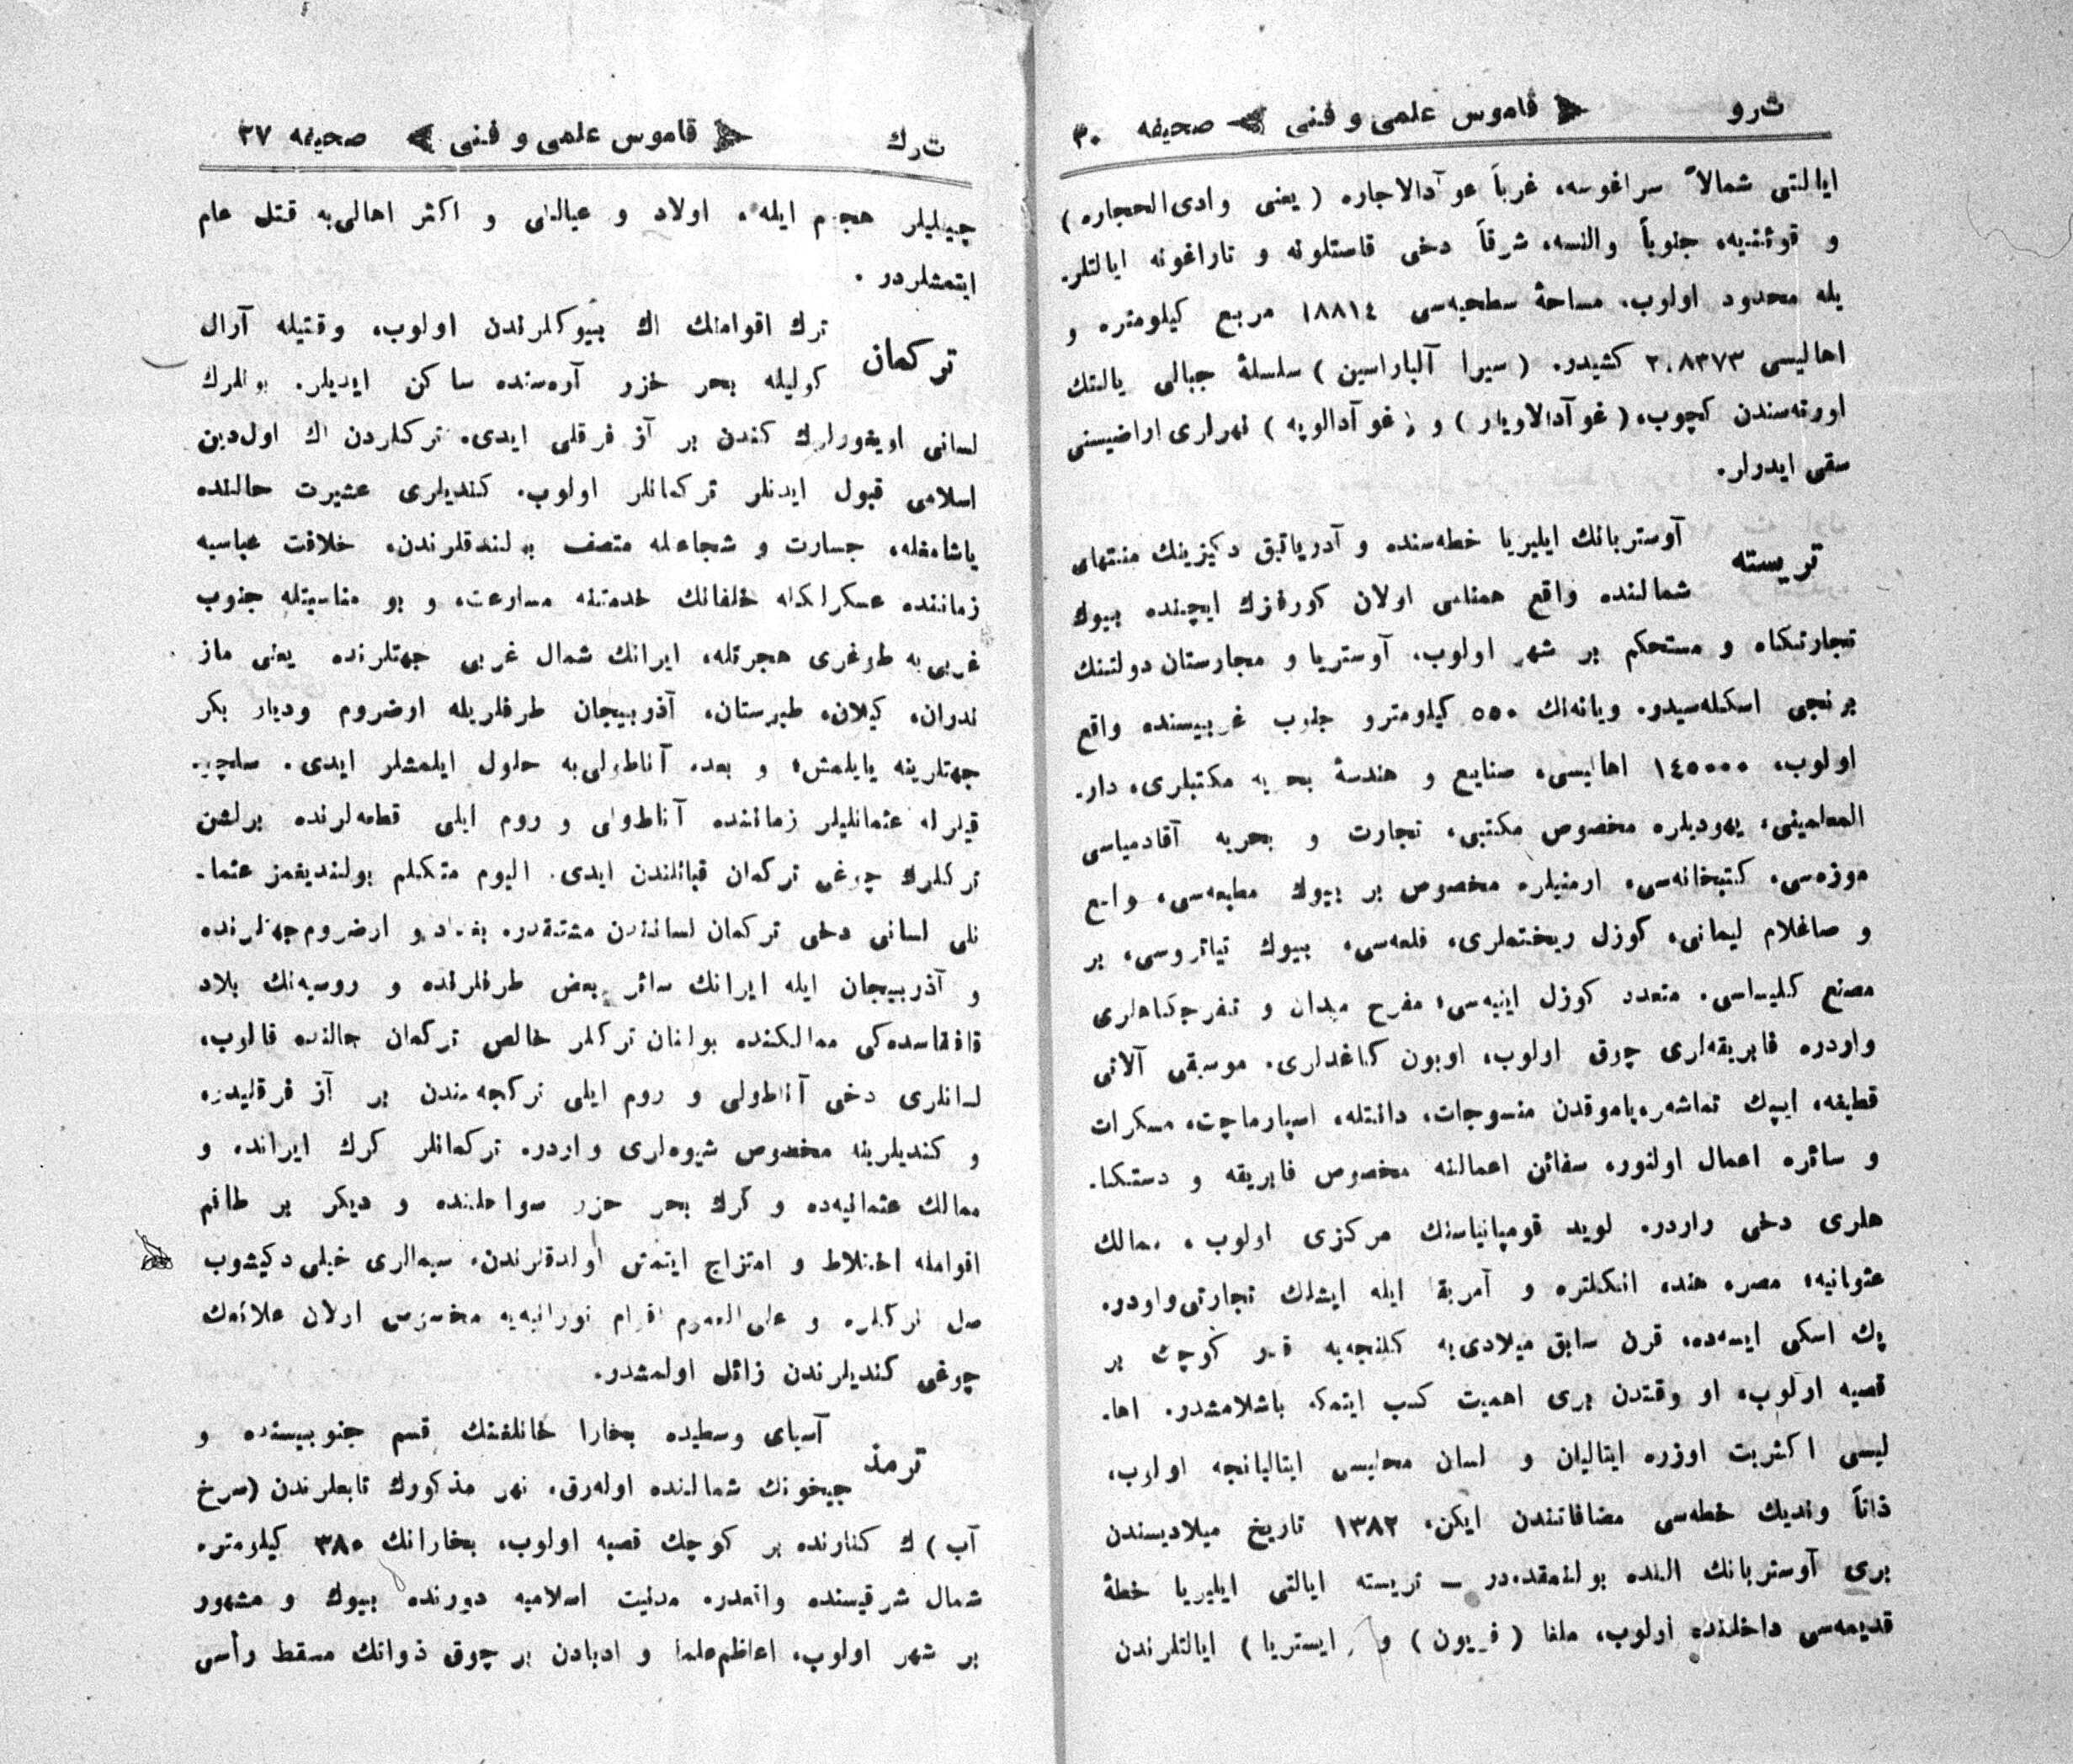 ت‌رو ﴿ قاموس علمی و فنی ﴾ صحیفه ۳۰
ایالتی شمالاً سراغوسه، غرباً غوآدالاجاره ( یعنی وادی‌الحجاره )
و قوئنسیه، جنوباً والنسه، شرقاً دخی قاستلونه و تاراغونه ایالتلر-
یله محدود اولوب، مساحهٔ سطحیه‌سی ۱۸۸۱٤ مربع کیلومتره و
اهالیسی ۲۰۸۳۷۳ کشیدر. ( سیرا آلباراسین ) سلسلهٔ جبالی یالتنك
اورته‌سندن کچوب، ( غوآدالاویار ) و ( غوآدالوپه ) نهرلری اراضیسنی
سقی ایدرلر.
تریسته
آوستریانك ایلیریا خطه‌سنده و آدریاتیق دکیزینك منتهای
شمالنده واقع همنامی اولان کورفزك ایچنده بیوك
تجارتکاه و مستحکم بر شهر اولوب، آوستریا و مجارستان دولتنك
برنجی اسکله‌سیدر. ویانه‌نك ٥٥٠ کیلومترو جنوب غربیسنده واقع
اولوب، ۱٤٥٠٠٠ اهالیسی، صنایع و هندسهٔ بحریه مکتبلری، دار-
المعلمینی، یهودیلره مخصوص مکتبی، تجارت و بحریه آقادمیاسی
موزه‌سی، کتبخانه‌سی، ارمنیلره مخصوص بر بیوك مطبعه‌سی، واسع
و صاغلام لیمانی، کوزل ریختملری، قلعه‌سی، بیوك تیاتروسی، بر
مصنع کلیساسی، متعدد کوزل ابنیه‌سی، مفرح میدان و تفرجکاهلری
واردر، فابریقه‌لری چوق اولوب، اویون کاغدلری، موسیقی آلاتی
قطیفه، ایپك قماشلر، پاموقدن منسوجات، دانتله، اسپارماچت، مسکرات
و سائره اعمال اولنور، سفائن اعمالنه مخصوص فابریقه و دستکا-
هلری دخی واردر. لوید قومپانیاسنك مرکزی اولوب، ممالك
عثمانیه، مصر، هند، انکلتره و آمریقا ایله ایشلك تجارتی واردر.
پك اسکی ایسه‌ده، قرن سابق میلادی‌یه کلنجه‌یه قدر کوچك بر
قصبه اولوب، او وقتدن بری اهمیت کسب ایتمکه باشلامشدر. اها-
لیسی اکثریت اوزره ایتالیان و لسان محلیسی ایتالیانجه اولوب،
ذاتاً وندیك خطه‌سی مضافاتندن ایکن، ۱۳۸۲ تاریخ میلادیسندن
بری آوستریانك النده بولنمقده‌در ــ تریسته ایالتی ایلیریا خطهٔ
قدیمه‌سی داخلنده اولوب، ملغا ( فریون ) و ( ایستریا ) ایالتلرندن
ت‌رك ﴿ قاموس علمی و فنی ﴾ صحیفه ۲۷
چینلیلر هجوم ایله، اولاد و عیالنی و اکثر اهالی‌یه قتل عام
ایتمشلردر .
ترکمان
ترك اقوامنك اك بیوکلرندن اولوب، وقتیله آرال
کولیله بحر خزر آره‌سنده ساکن ایدیلر. بونلرك
لسانی اویغورلرك کندن بر آز فرقلی ایدی، ترکلردن اك اول‌دین
اسلامی قبول ایدنلر ترکمانلر اولوب، کندیلری عشیرت حالنده
یاشامغله، جسارت و شجاعتله متصف بولندقلرندن، خلافت عباسیه
زماننده عسکرلکله خلفانك خدمتنه مسارعت، و بو مناسبتله جنوب
غربی‌یه طوغری هجرتله، ایرانك شمال غربی جهتلرنده یعنی ماز-
ندران، کیلان، طبرستان، آذربیجان طرفلریله ارضروم ودیار بکر
جهتلرینه یایلمش، و بعده آناطولی‌یه حلول ایلمشلر ایدی. سلچو-
قیلرله عثمانلیلر زماننده آناطولی و روم ایلی قطعه‌لرنده یرلشن
ترکلرك چوغی ترکمان قبائلندن ایدی. الیوم متکلم بولندیغمز عثما-
نلی لسانی دخی ترکمان لسانندن مشتقدر، بغداد و ارضروم جهتلرنده
و آذربیجان ایله ایرانك سائر بعض طرفلرنده و روسیه‌نك بلاد
قافقاسده‌کی ممالکنده بولنان ترکلر خالص ترکمان حالنده قالوب،
لسانلری دخی آناطولی و روم ایلی ترکجه‌سندن بر آز فرقلیدر،
و کندیلرینه مخصوص شیوه‌لری واردر، ترکمانلر کرك ایرانده و
ممالك عثمانیه‌ده و کرك بحر خزر سواحلنده و دیکر بر طاقم
اقوامله اختلاط و امتزاج ایتمش اولدقلرندن، سیمالری خیلی دکیشوب
اصل ترکلره و علی‌العموم اقوام تورانیه‌یه مخصوص اولان علائمك
چوغی کندیلرندن زائل اولمشدر.
ترمذ
آسیای وسطیده بخارا خانلغنك قسم جنوبیسنده و
جیحونك شمالنده اوله‌رق، نهر مذکورك تابعلرندن (سرخ
آب ) ك کنارنده بر کوچك قصبه اولوب، بخارانك ۳۸۰ کیلومتره
شمال شرقیسنده واقعدر، مدنیت اسلامیه دورنده بیوك و مشهور
بر شهر اولوب، اعاظم علما و ادبادن بر چوق ذواتك مسقط رأسی